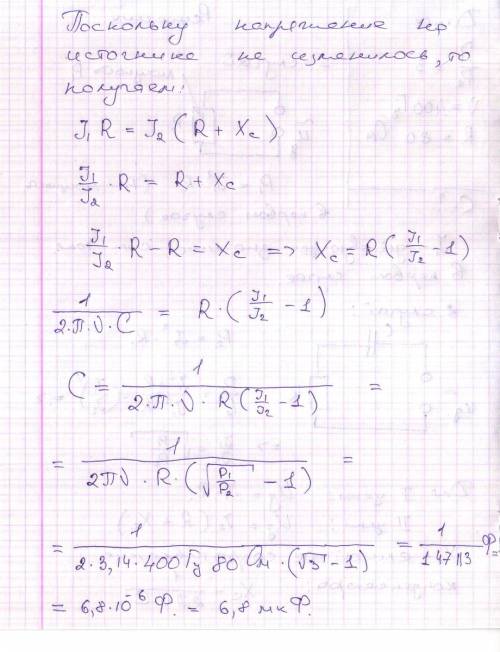 Поскольку напряжение на
источнике не изменилось, то
получаем:
J₁R = J₂(R + Xc)
J₁/J₂ · R = R + Xc
J₁/J₂ · R - R = Xc => Xc = R(J₁/J₂ - 1)
1/(2·П·ν·C) = R·(J₁/J₂ - 1)
C = 1/(2·П·ν·R(J₁/J₂ - 1)) =
= 1/(2Πν·R·(√(P₁/P₂) - 1)) =
= 1/(2·3,14·400Гц 80 Ом·(√3 - 1)) = 1/147113 Ф =
= 6,8·10⁻⁶ Ф. = 6,8 мкФ.